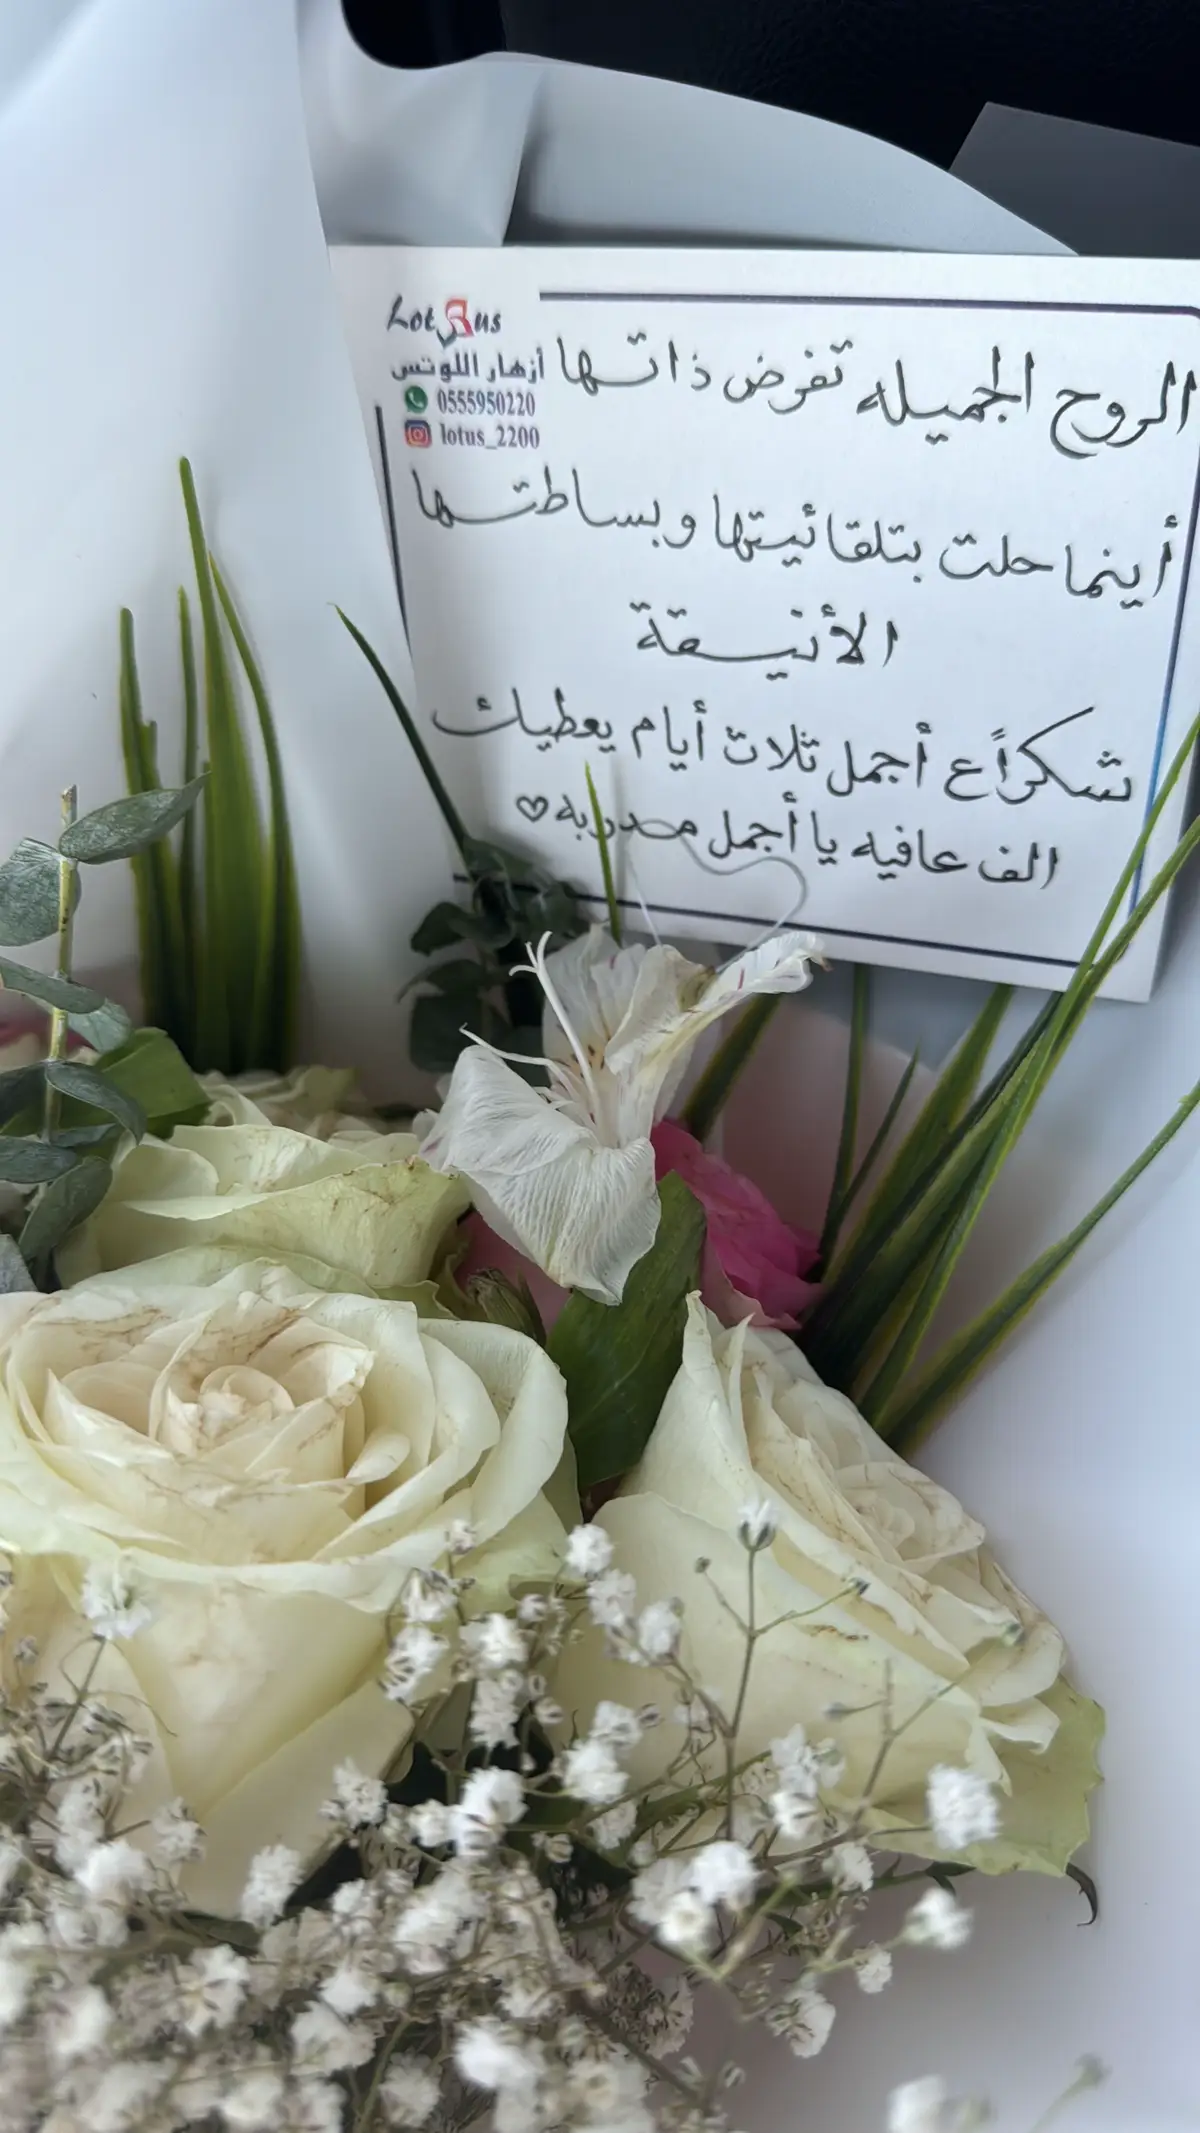 Lotus
أزهار اللوتس
0555950220
lotus_2200
الروح الجميله تفرض ذاتها
أينما حلت بتلقائيتها وبساطتها
الأنيقة
شكراً ع أجمل ثلاث أيام يعطيك
الف عافيه يا أجمل مدربه ♡